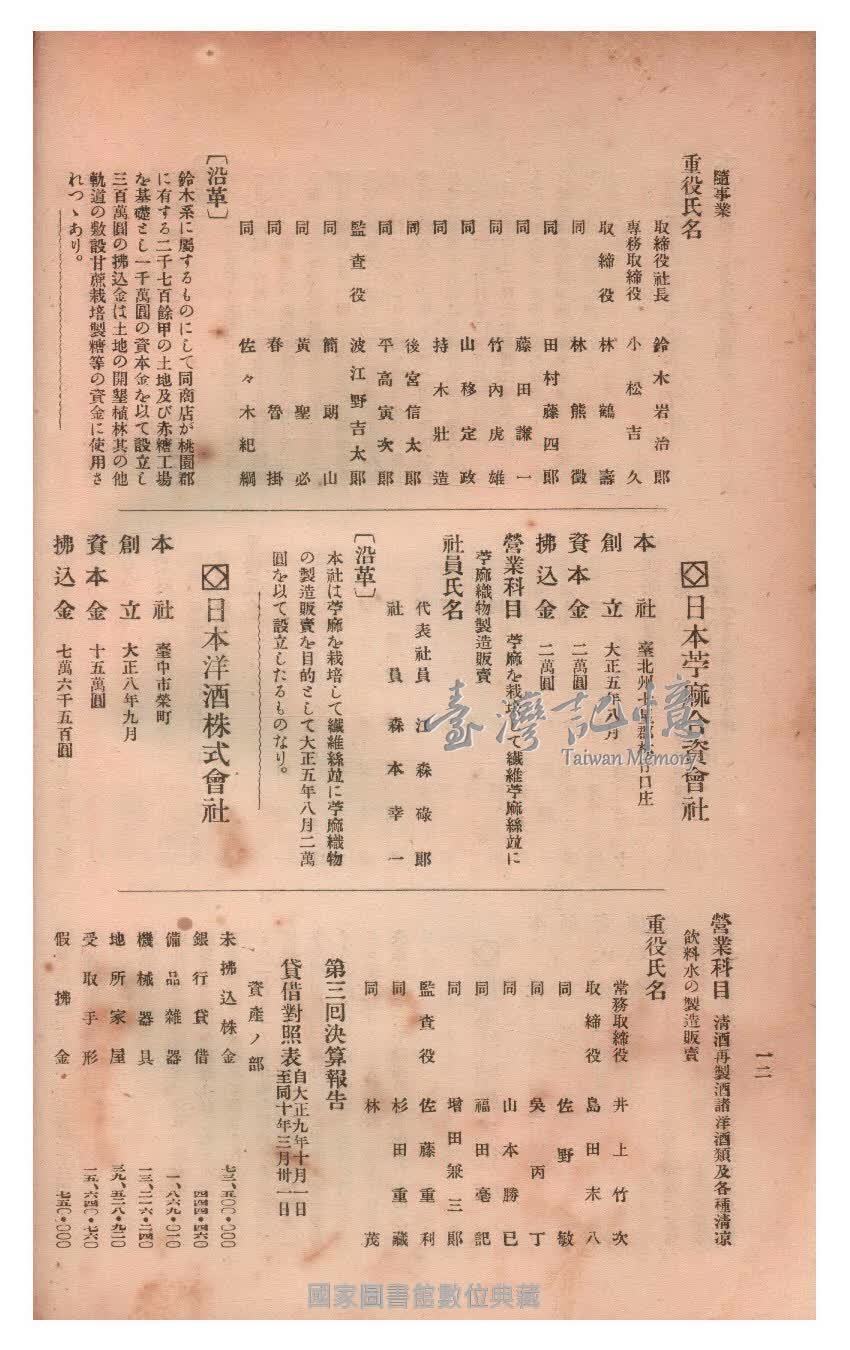 隨事業
重役氏名
取締役社長 鈴木岩治郎
專務取締役 小松吉久
取締役 林鶴壽
同 林熊徵
同 田村藤四郎
同 藤田謙一
同 竹內虎雄
同 山移定政
同 持木壯造
同 後宮信太郎
同 平高寅次郎
監查役 波江野吉太郎
同 簡朗山
同 黃聖必
同 春魯掛
同 佐々木紀綱
〔沿革〕
鈴木系に屬するものにして同商店が桃園郡
に有する二千七百餘甲の土地及び赤糖工場
を基礎とし一千萬圓の資本金を以て設立し
三百萬圓の拂込金は土地の開墾植林其の他
軌道の敷設甘蔗栽培製糖等の資金に使用さ
れつゝあり。
日本苧麻合資會社
本社 臺北州
創立 大正五年八月
資本金 二萬圓
拂込金 二萬圓
營業科目 苧麻を栽培して纖維苧麻絲竝に
苧麻織物製造販賣
社員氏名
代表社員 江森碌郎
社員 森本幸一
〔沿革〕
本社は苧麻を栽培して纖維絲竝に苧麻織物
の製造販賣を目的として大正五年八月二萬
圓を以て設立したるものなり。
日本洋酒株式會社
本社 臺中市榮町
創立 大正八年九月
資本金 十五萬圓
拂込金 七萬六千五百圓
營業科目 清酒再製酒諸洋酒類及各種清凉
飲料水の製造販賣
重役氏名
常務取締役 井上竹次
取締役 島田末八
同 佐野敏
同 吳丙丁
同 山本勝巳
同 福田毫記
同 增田兼三郎
監查役 佐藤重利
同 杉田重藏
同 林茂
第三回決算報告
貸借對照表 自大正九年十月一日
至同十年三月卅一日
資產ノ部
未拂込株金 七三、五〇〇・〇〇〇
銀行貸借 四四四・四六〇
備品雜器 一、八六九・〇一〇
機械器具 一三、二一六・二四〇
地所家屋 三九、五二八・九二〇
受取手形 一五、六四〇・七六〇
假拂金 七五〇・〇〇〇
一二
臺灣記憶
Taiwan Memory
國家圖書館數位典藏